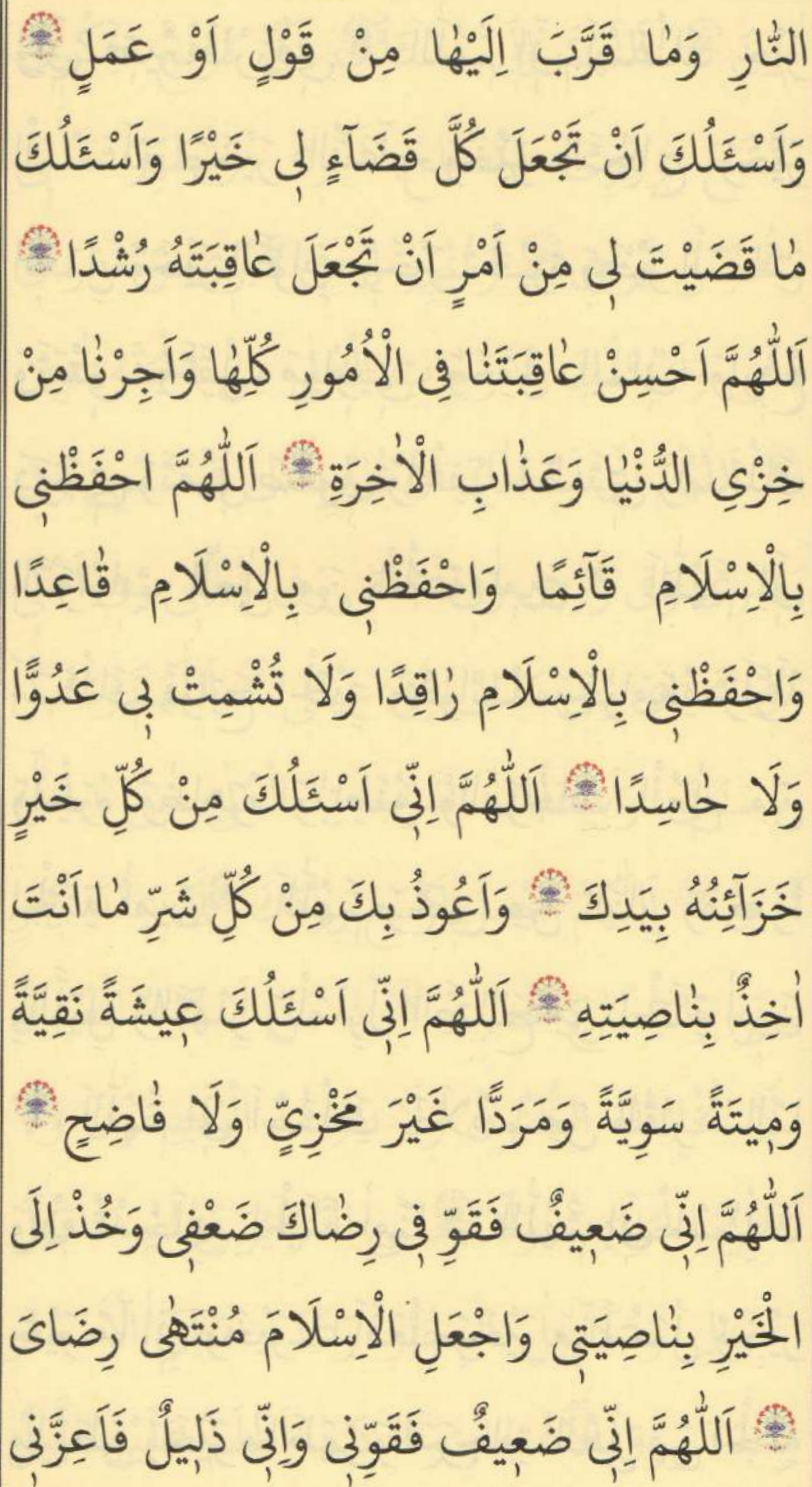 النَّارِ وَمٰا قَرَّبَ اِلَيْهٰا مِنْ قَوْلٍ اَوْ عَمَلٍ
وَاَسْئَلُكَ اَنْ تَجْعَلَ كُلَّ قَضَآءٍ لٖى خَيْرًا وَاَسْئَلُكَ
مٰا قَضَيْتَ لٖى مِنْ اَمْرٍ اَنْ تَجْعَلَ عٰاقِبَتَهُ رُشْدًا
اَللّٰهُمَّ اَحْسِنْ عٰاقِبَتَنٰا فِى الْاُمُورِ كُلِّهٰا وَاَجِرْنٰا مِنْ
خِزْىِ الدُّنْيٰا وَعَذٰابِ الْاٰخِرَةِ اَللّٰهُمَّ احْفَظْنٖى
بِالْاِسْلَامِ قَآئِمًا وَاحْفَظْنٖى بِالْاِسْلَامِ قٰاعِدًا
وَاحْفَظْنٖى بِالْاِسْلَامِ رٰاقِدًا وَلَا تُشْمِتْ بٖى عَدُوًّا
وَلَا حٰاسِدًا اَللّٰهُمَّ اِنّٖى اَسْئَلُكَ مِنْ كُلِّ خَيْرٍ
خَزَآئِنُهُ بِيَدِكَ وَاَعُوذُ بِكَ مِنْ كُلِّ شَرِّ مٰا اَنْتَ
اٰخِذٌ بِنٰاصِيَتِهِ اَللّٰهُمَّ اِنّٖى اَسْئَلُكَ عٖيشَةً نَقِيَّةً
وَمٖيتَةً سَوِيَّةً وَمَرَدًّا غَيْرَ مَخْزِىٍّ وَلَا فٰاضِحٍ
اَللّٰهُمَّ اِنّٖى ضَعٖيفٌ فَقَوِّ فٖى رِضٰاكَ ضَعْفٖى وَخُذْ اِلَى
الْخَيْرِ بِنٰاصِيَتٖى وَاجْعَلِ الْاِسْلَامَ مُنْتَهٰى رِضَاىَ
اَللّٰهُمَّ اِنّٖى ضَعٖيفٌ فَقَوِّنٖى وَاِنّٖى ذَلٖيلٌ فَاَعِزَّنٖى